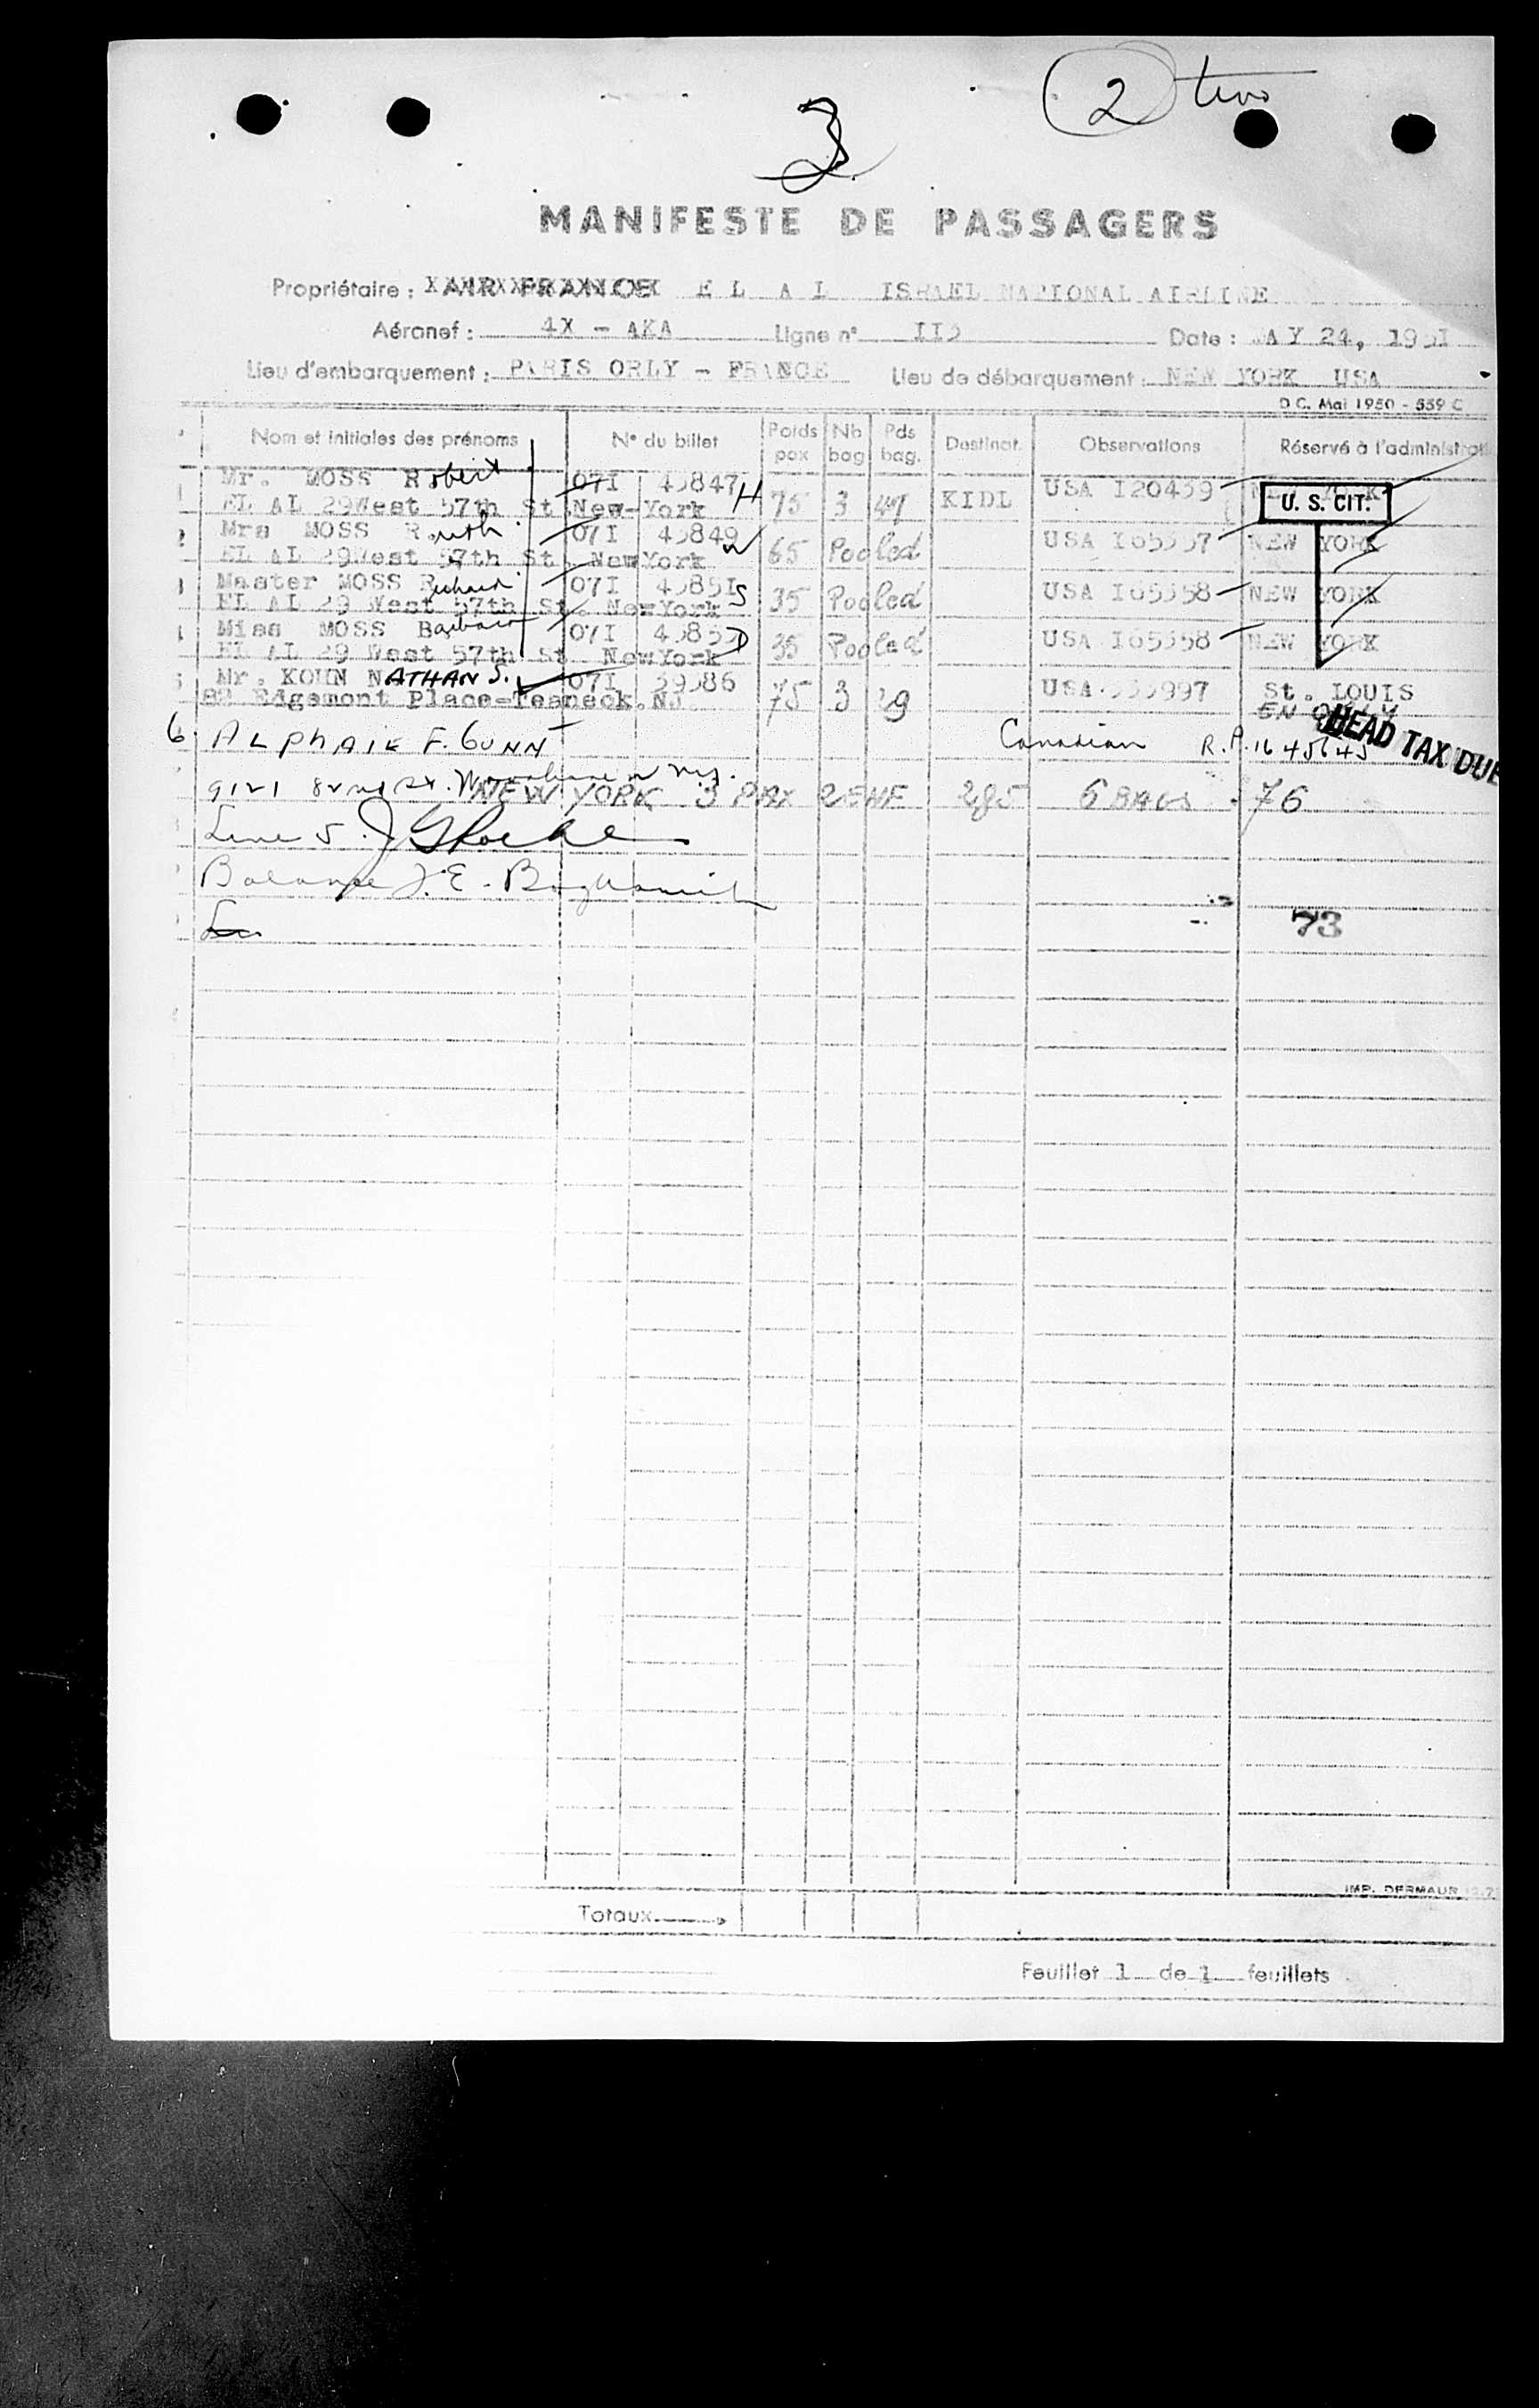 2 two
3
MANIFESTE DE PASSAGERS
Propriétaire : AIR FRANCE E L A L ISRAEL NATIONAL AIRLINE
Aéronef : 4X - AKA Ligne n° II5 Date : MAY 24, 1951
Lieu d'embarquement : PARIS ORLY - FRANCE Lieu de débarquement : NEW YORK USA
D.C. Mai 1950 - 559 C
Nom et initiales des prénoms N° du billet Poids pax Nb bag Pds bag. Destinat. Observations Réservé à l'administration
1 Mr. MOSS Robert 07I 45847 H 75 3 47 KIDL USA I20459 NEW YORK
EL AL 29West 57th St New-York U. S. CIT.
2 Mrs MOSS Ruth 07I 45849 w 65 Pooled USA I65557 NEW YORK
EL AL 29West 57th St. NewYork
3 Master MOSS Richard 07I 4585I S 35 Pooled USA I65558 NEW YORK
EL AL 29 West 57th St. New York
4 Miss MOSS Barbara 07I 45853 D 35 Pooled USA I65558 NEW YORK
EL AL 29 West 57th St NewYork
5 Mr. KOHN NATHAN S. 07I 39586 75 3 29 USA 555997 St. LOUIS
82 Edgemont Place-Teaneck.NJ
HEAD TAX DUE
6. F. GUNN Canadian R.P. 1645645
9121 St. NEW YORK 3 PAX 285 6 BAGS 76
Line 5. J
Balance J. E.
73
Totaux
IMP. DERMAUR
Feuillet 1 de 1 feuillets